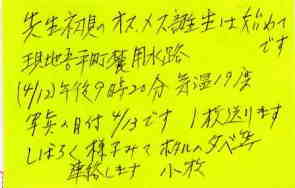 先生初頭のオス、メス誕生は始めて
です
現地吾平町麓用水路
(4/12)午後9時20分 気温19度
写真の日付4/13です 1枚送ります
しばらく様子みてホタルの夕べ等
連絡します 小牧